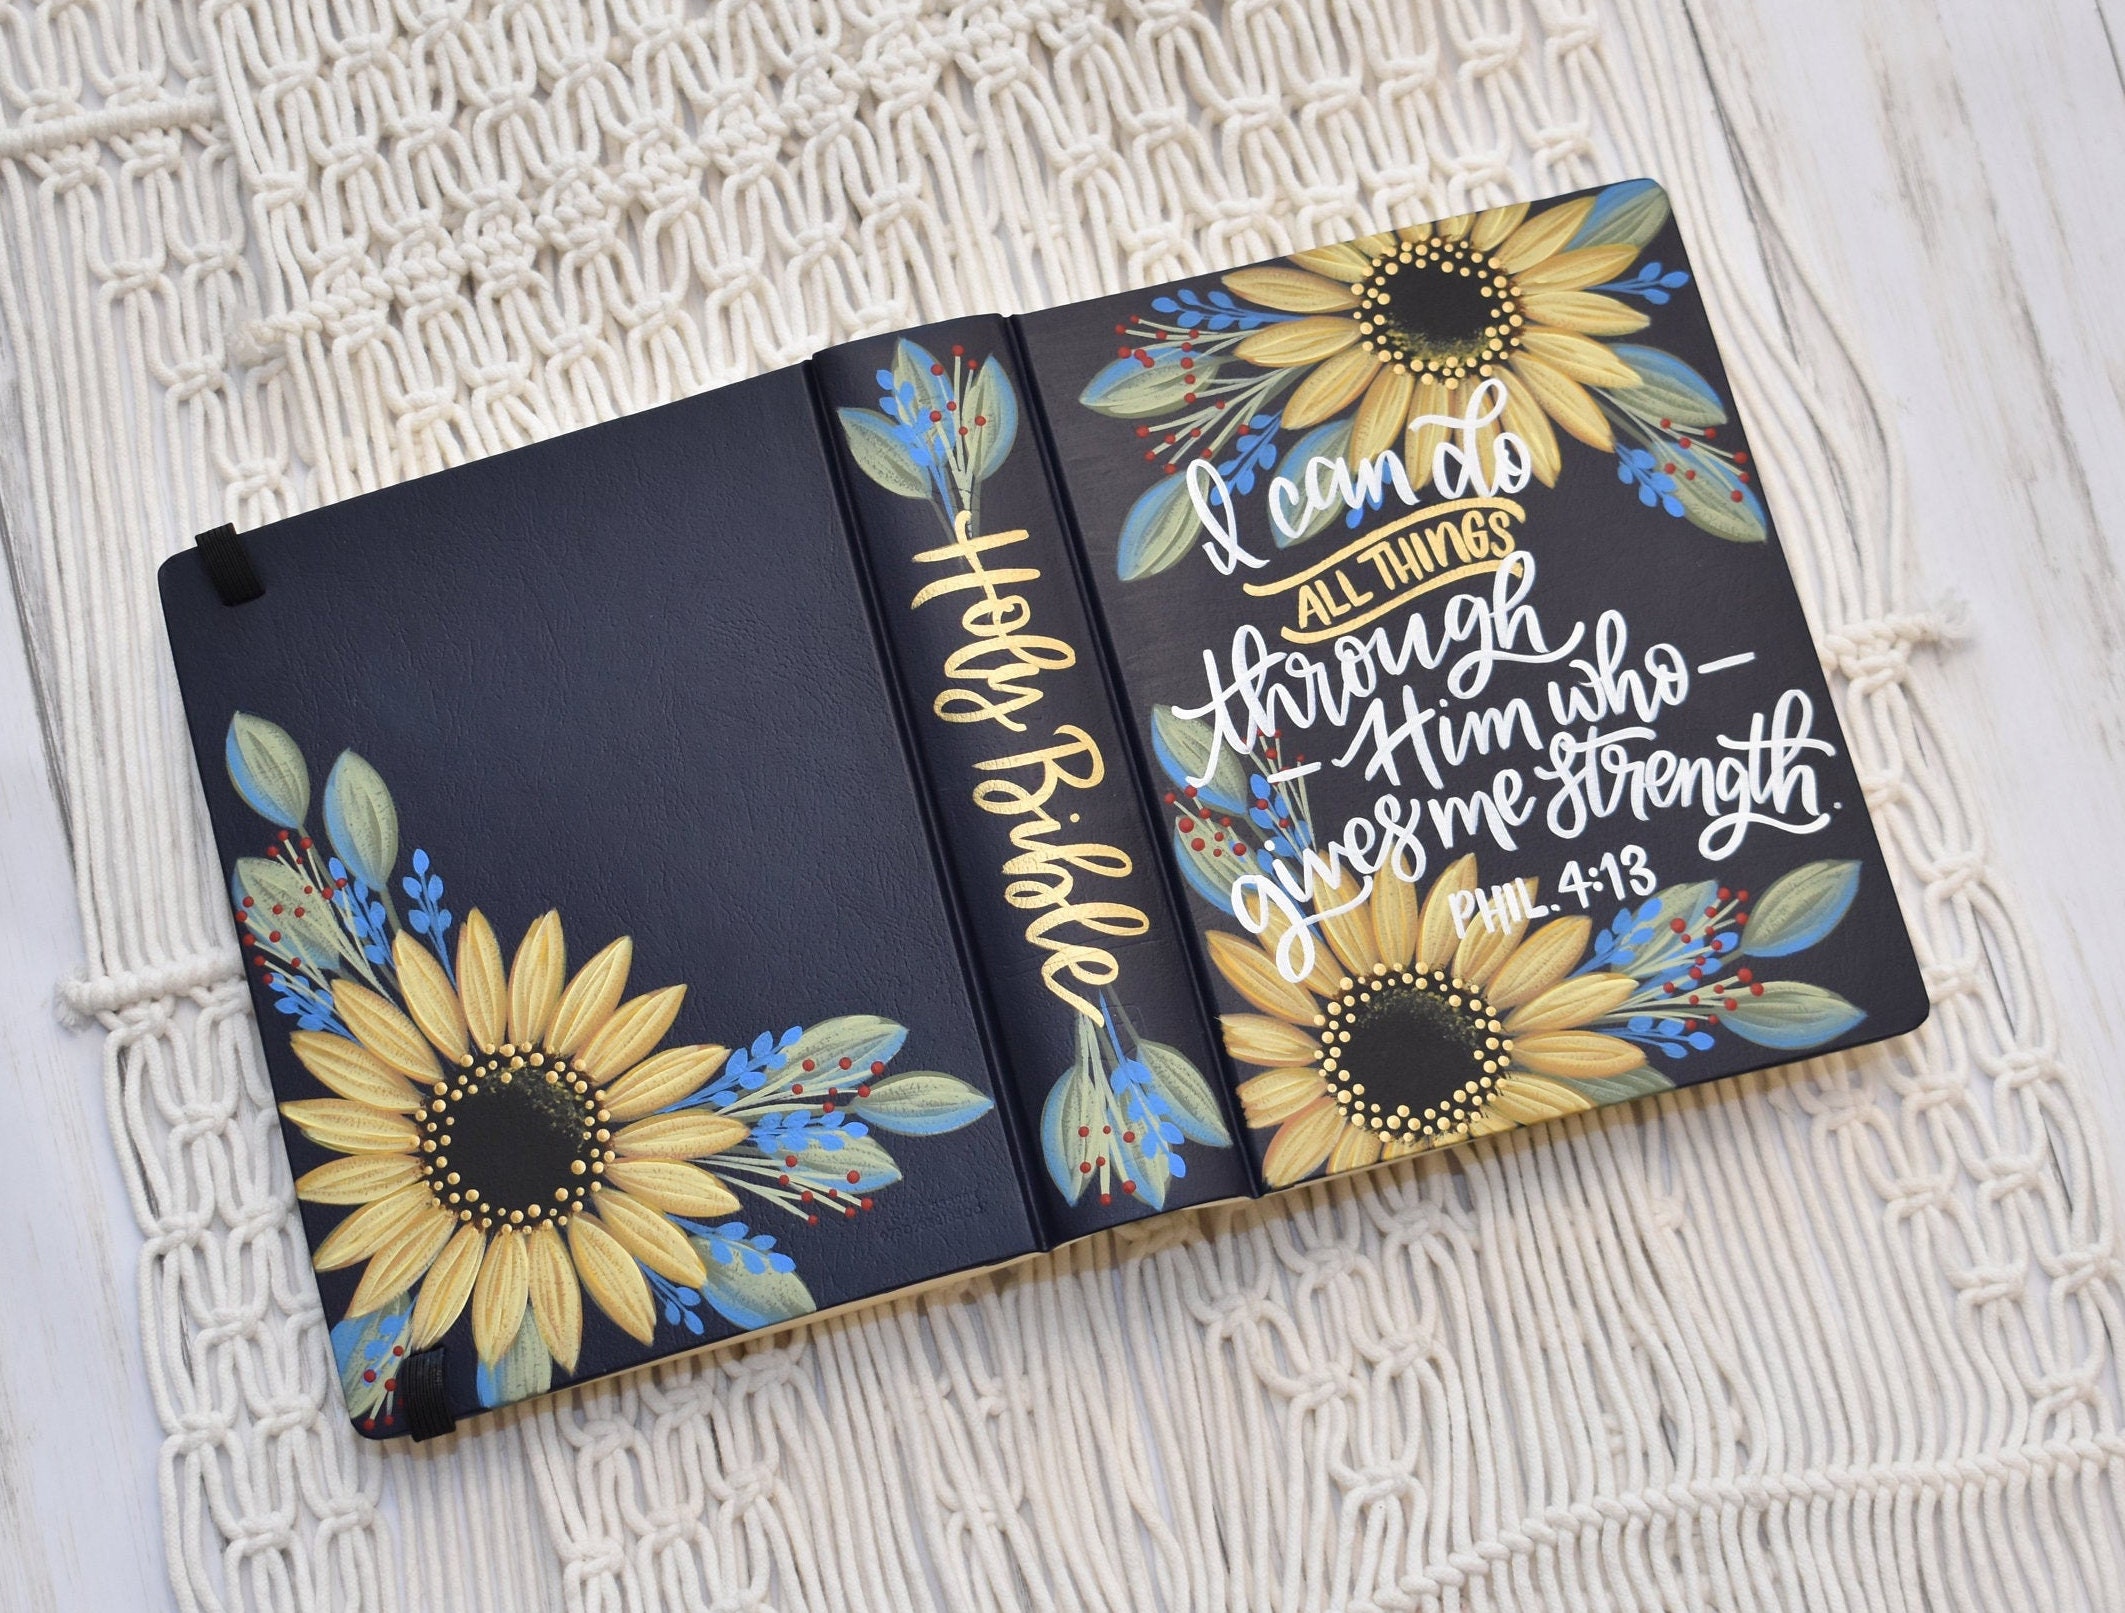 Holy Bible
I can do
ALL THINGS
through
- Him who -
gives me strength.
PHIL. 4:13